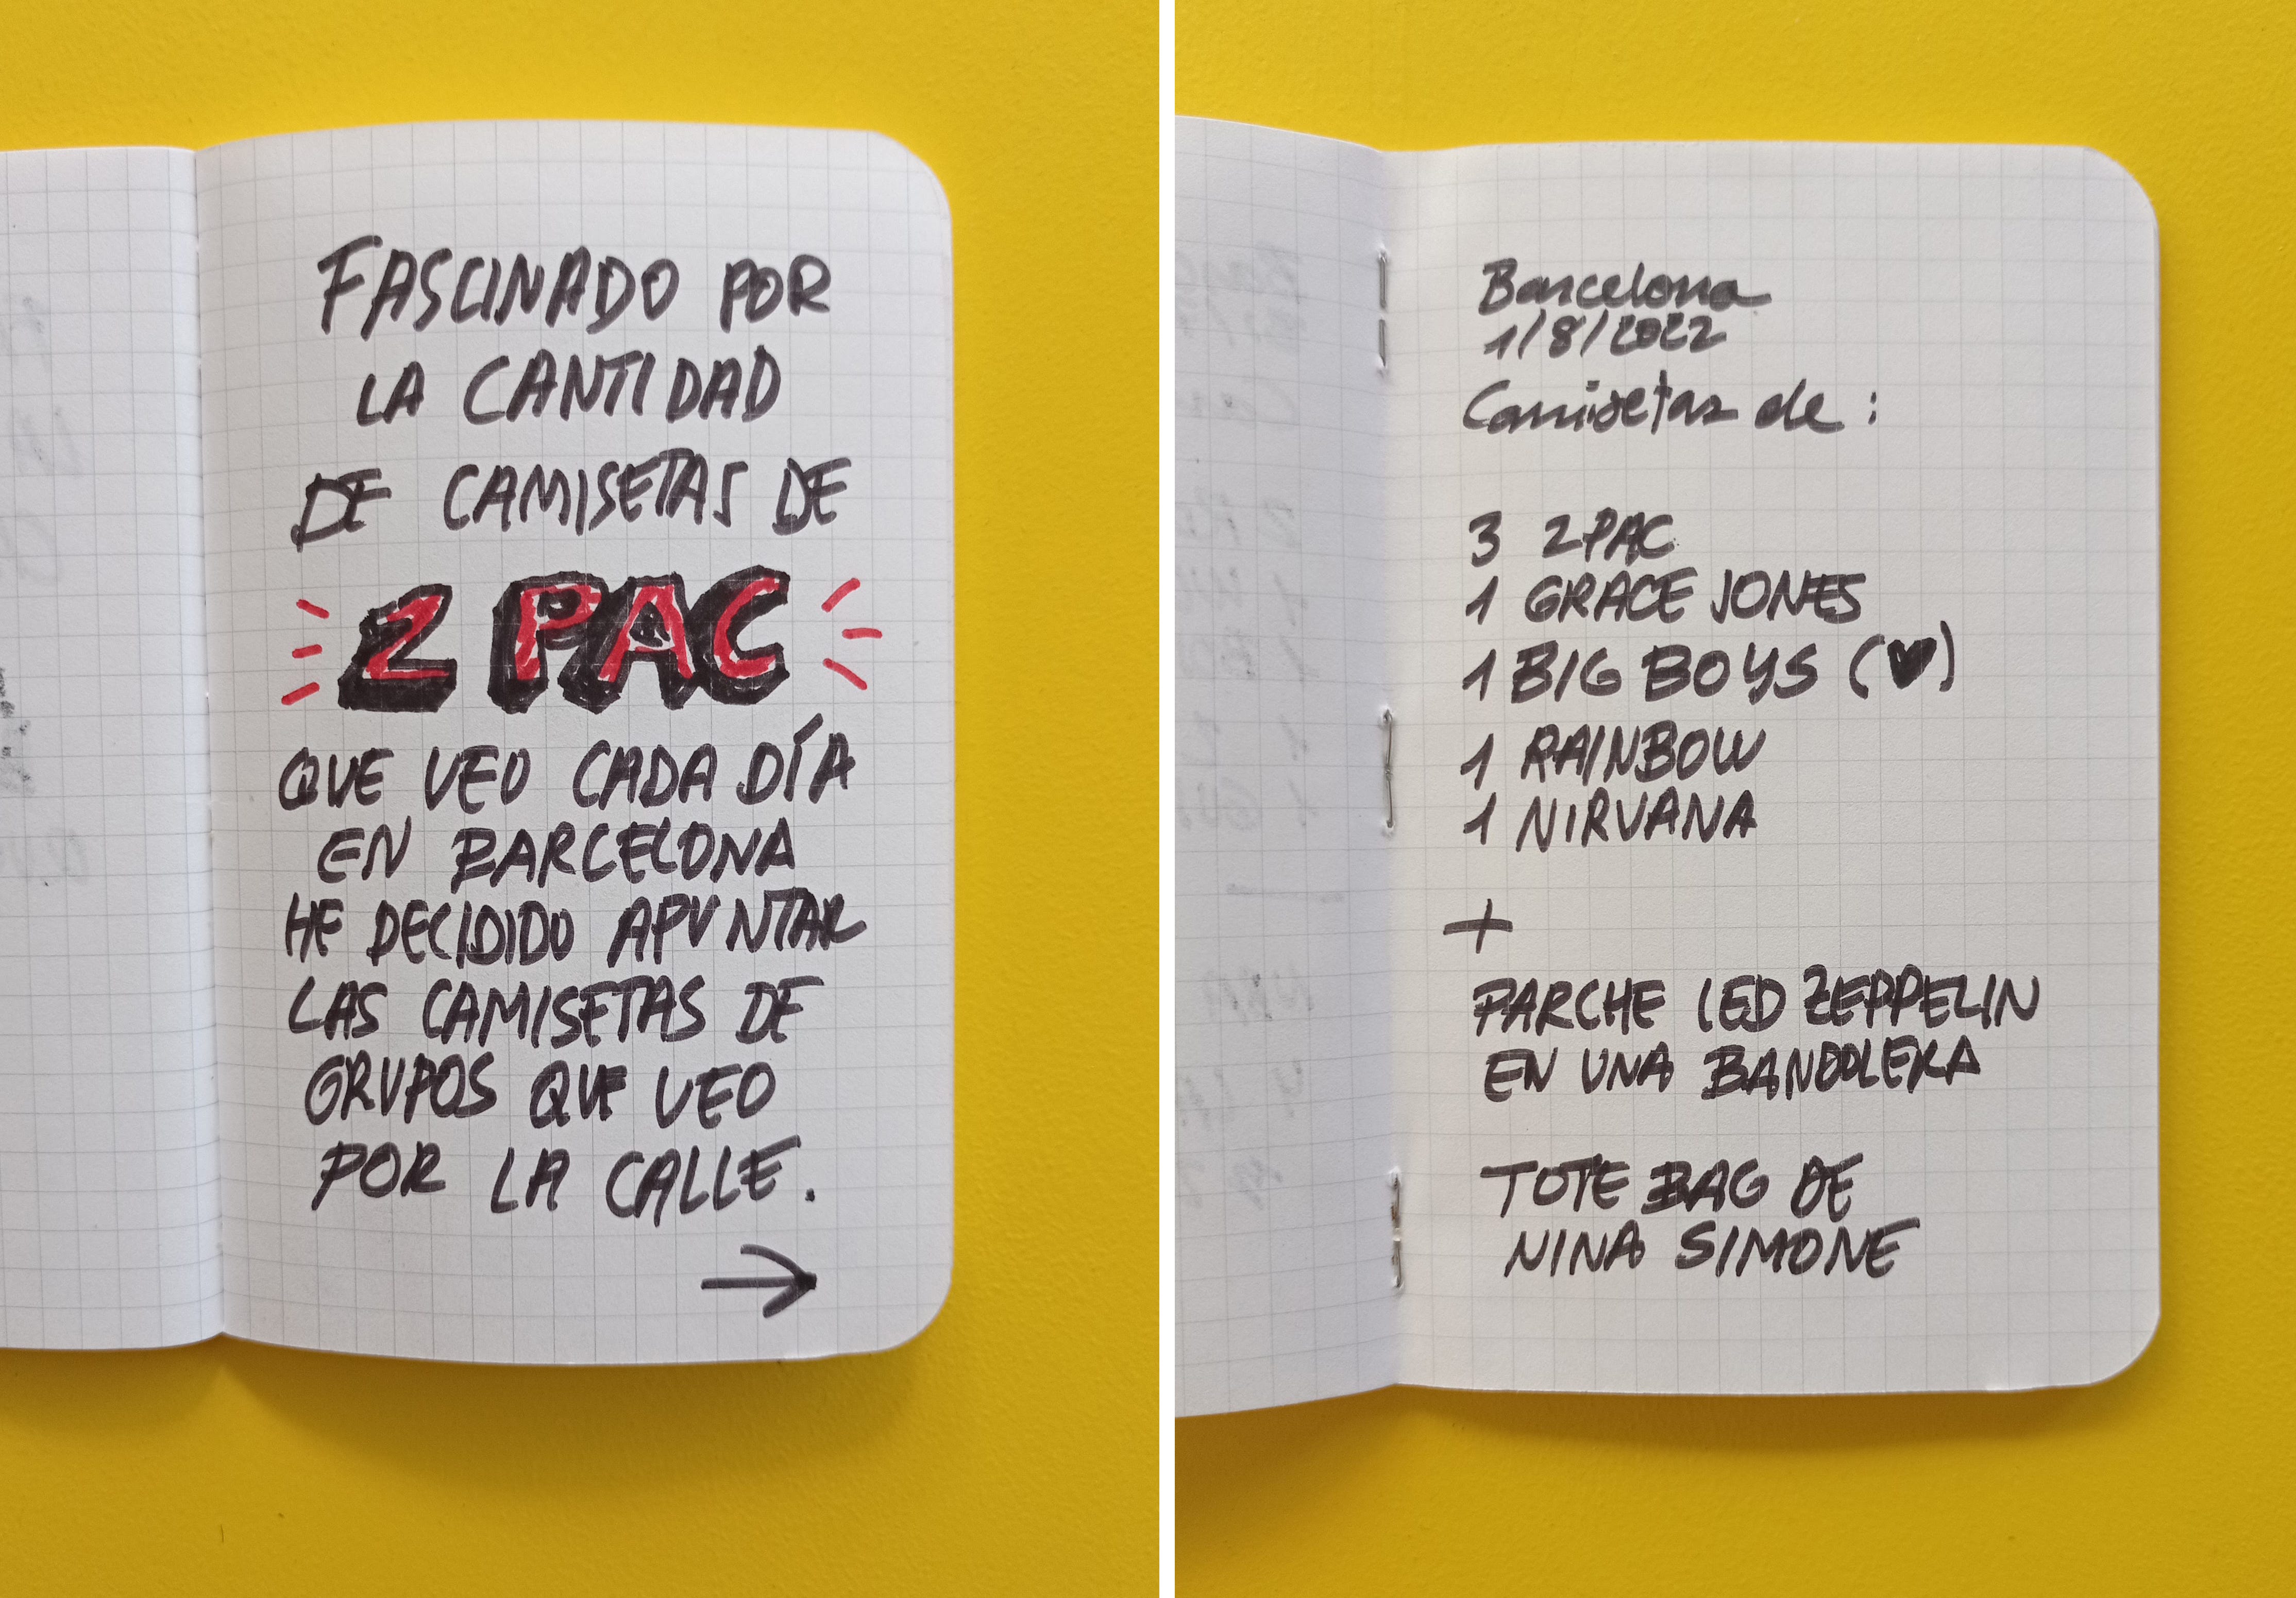 FASCINADO POR
LA CANTIDAD
DE CAMISETAS DE
2 PAC
QUE VEO CADA DÍA
EN BARCELONA
HE DECIDIDO APUNTAR
LAS CAMISETAS DE
GRUPOS QUE VEO
POR LA CALLE.
→
Barcelona
1/8/2022
Camisetas de:
3 2PAC
1 GRACE JONES
1 BIG BOYS (♥)
1 RAINBOW
1 NIRVANA
+
PARCHE LED ZEPPELIN
EN UNA BANDOLERA
TOTE BAG DE
NINA SIMONE